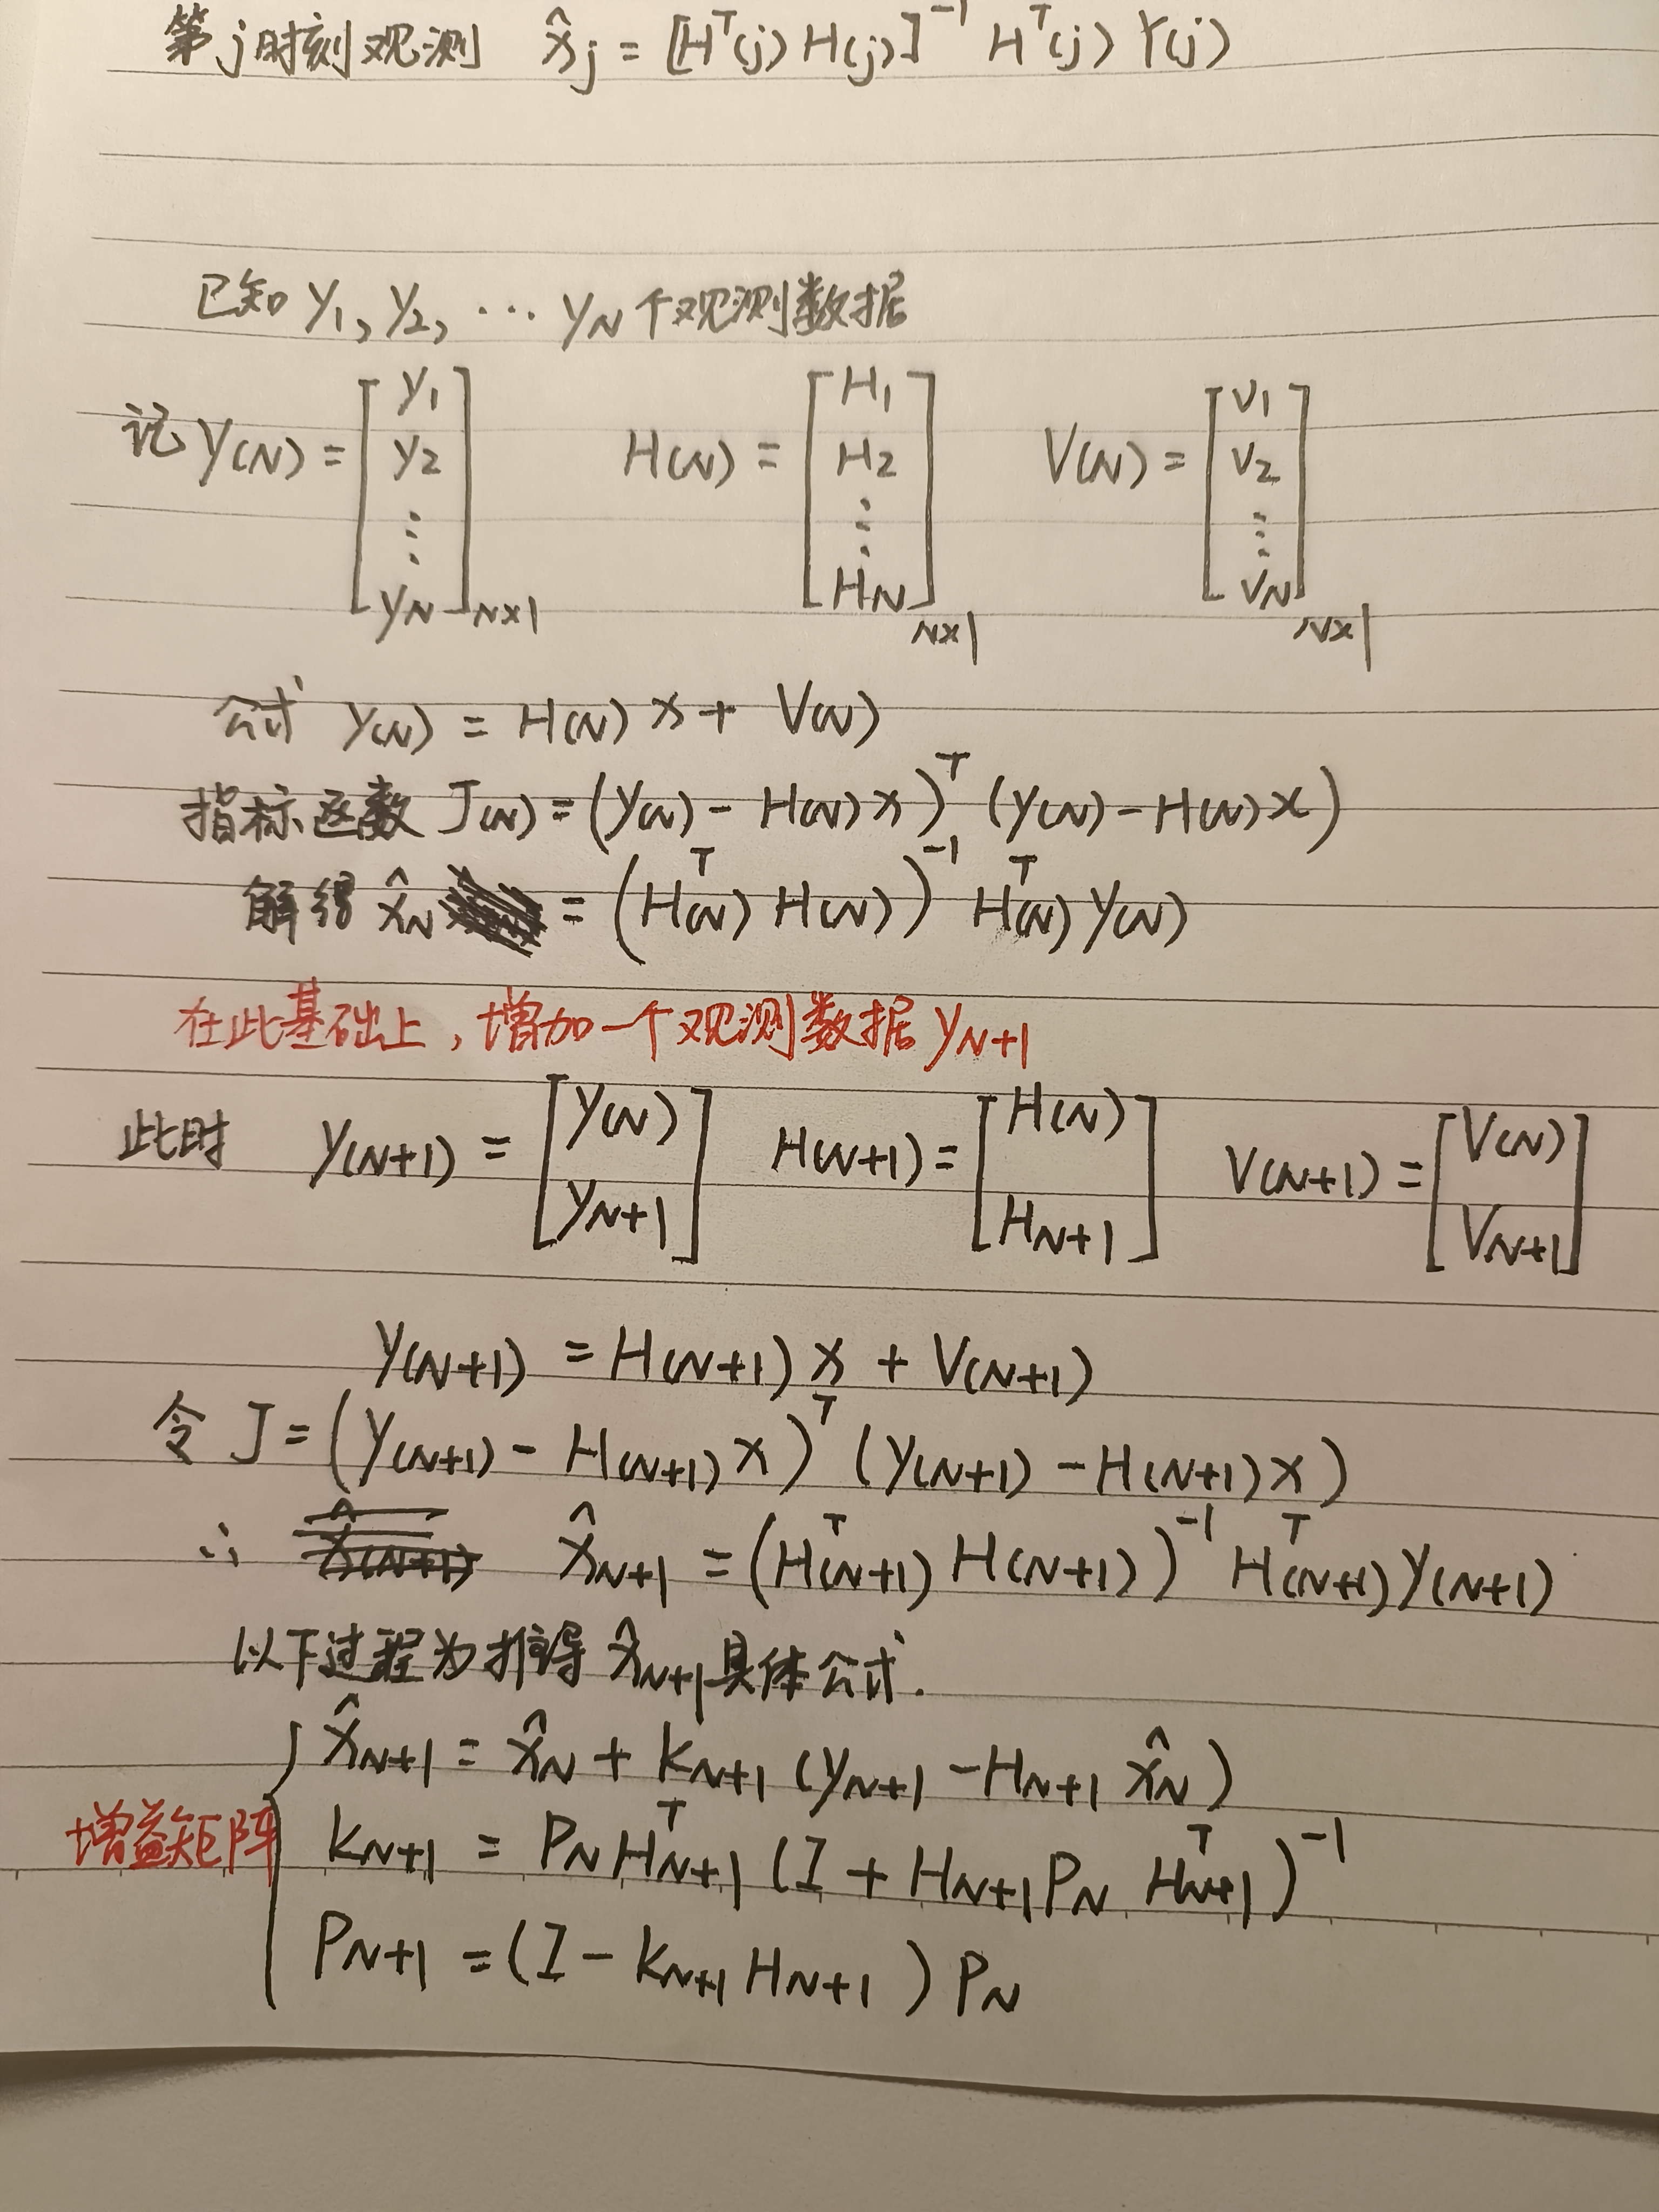 第j时刻观测 x̂j = [Hᵀ(j) H(j)]⁻¹ Hᵀ(j) Y(j)
已知 y₁, y₂, ⋯ yN 个观测数据
记 Y(N) = [y₁ y₂ ⋮ yN]N×1 H(N) = [H₁ H₂ ⋮ HN]N×1 V(N) = [v₁ v₂ ⋮ vN]N×1
公式 Y(N) = H(N) x + V(N)
指标函数 J(N) = (Y(N) - H(N) x)ᵀ (Y(N) - H(N) x)
解得 x̂N = (Hᵀ(N) H(N))⁻¹ Hᵀ(N) Y(N)
在此基础上，增加一个观测数据 yN+1
此时 Y(N+1) = [Y(N) yN+1] H(N+1) = [H(N) HN+1] V(N+1) = [V(N) VN+1]
Y(N+1) = H(N+1) x + V(N+1)
令 J = (Y(N+1) - H(N+1) x)ᵀ (Y(N+1) - H(N+1) x)
∴ x̂N+1 = (Hᵀ(N+1) H(N+1))⁻¹ Hᵀ(N+1) Y(N+1)
以下过程为推导 x̂N+1 具体公式.
x̂N+1 = x̂N + KN+1 (yN+1 - HN+1 x̂N)
增益矩阵 KN+1 = PN HᵀN+1 (I + HN+1 PN HᵀN+1)⁻¹
PN+1 = (I - KN+1 HN+1) PN